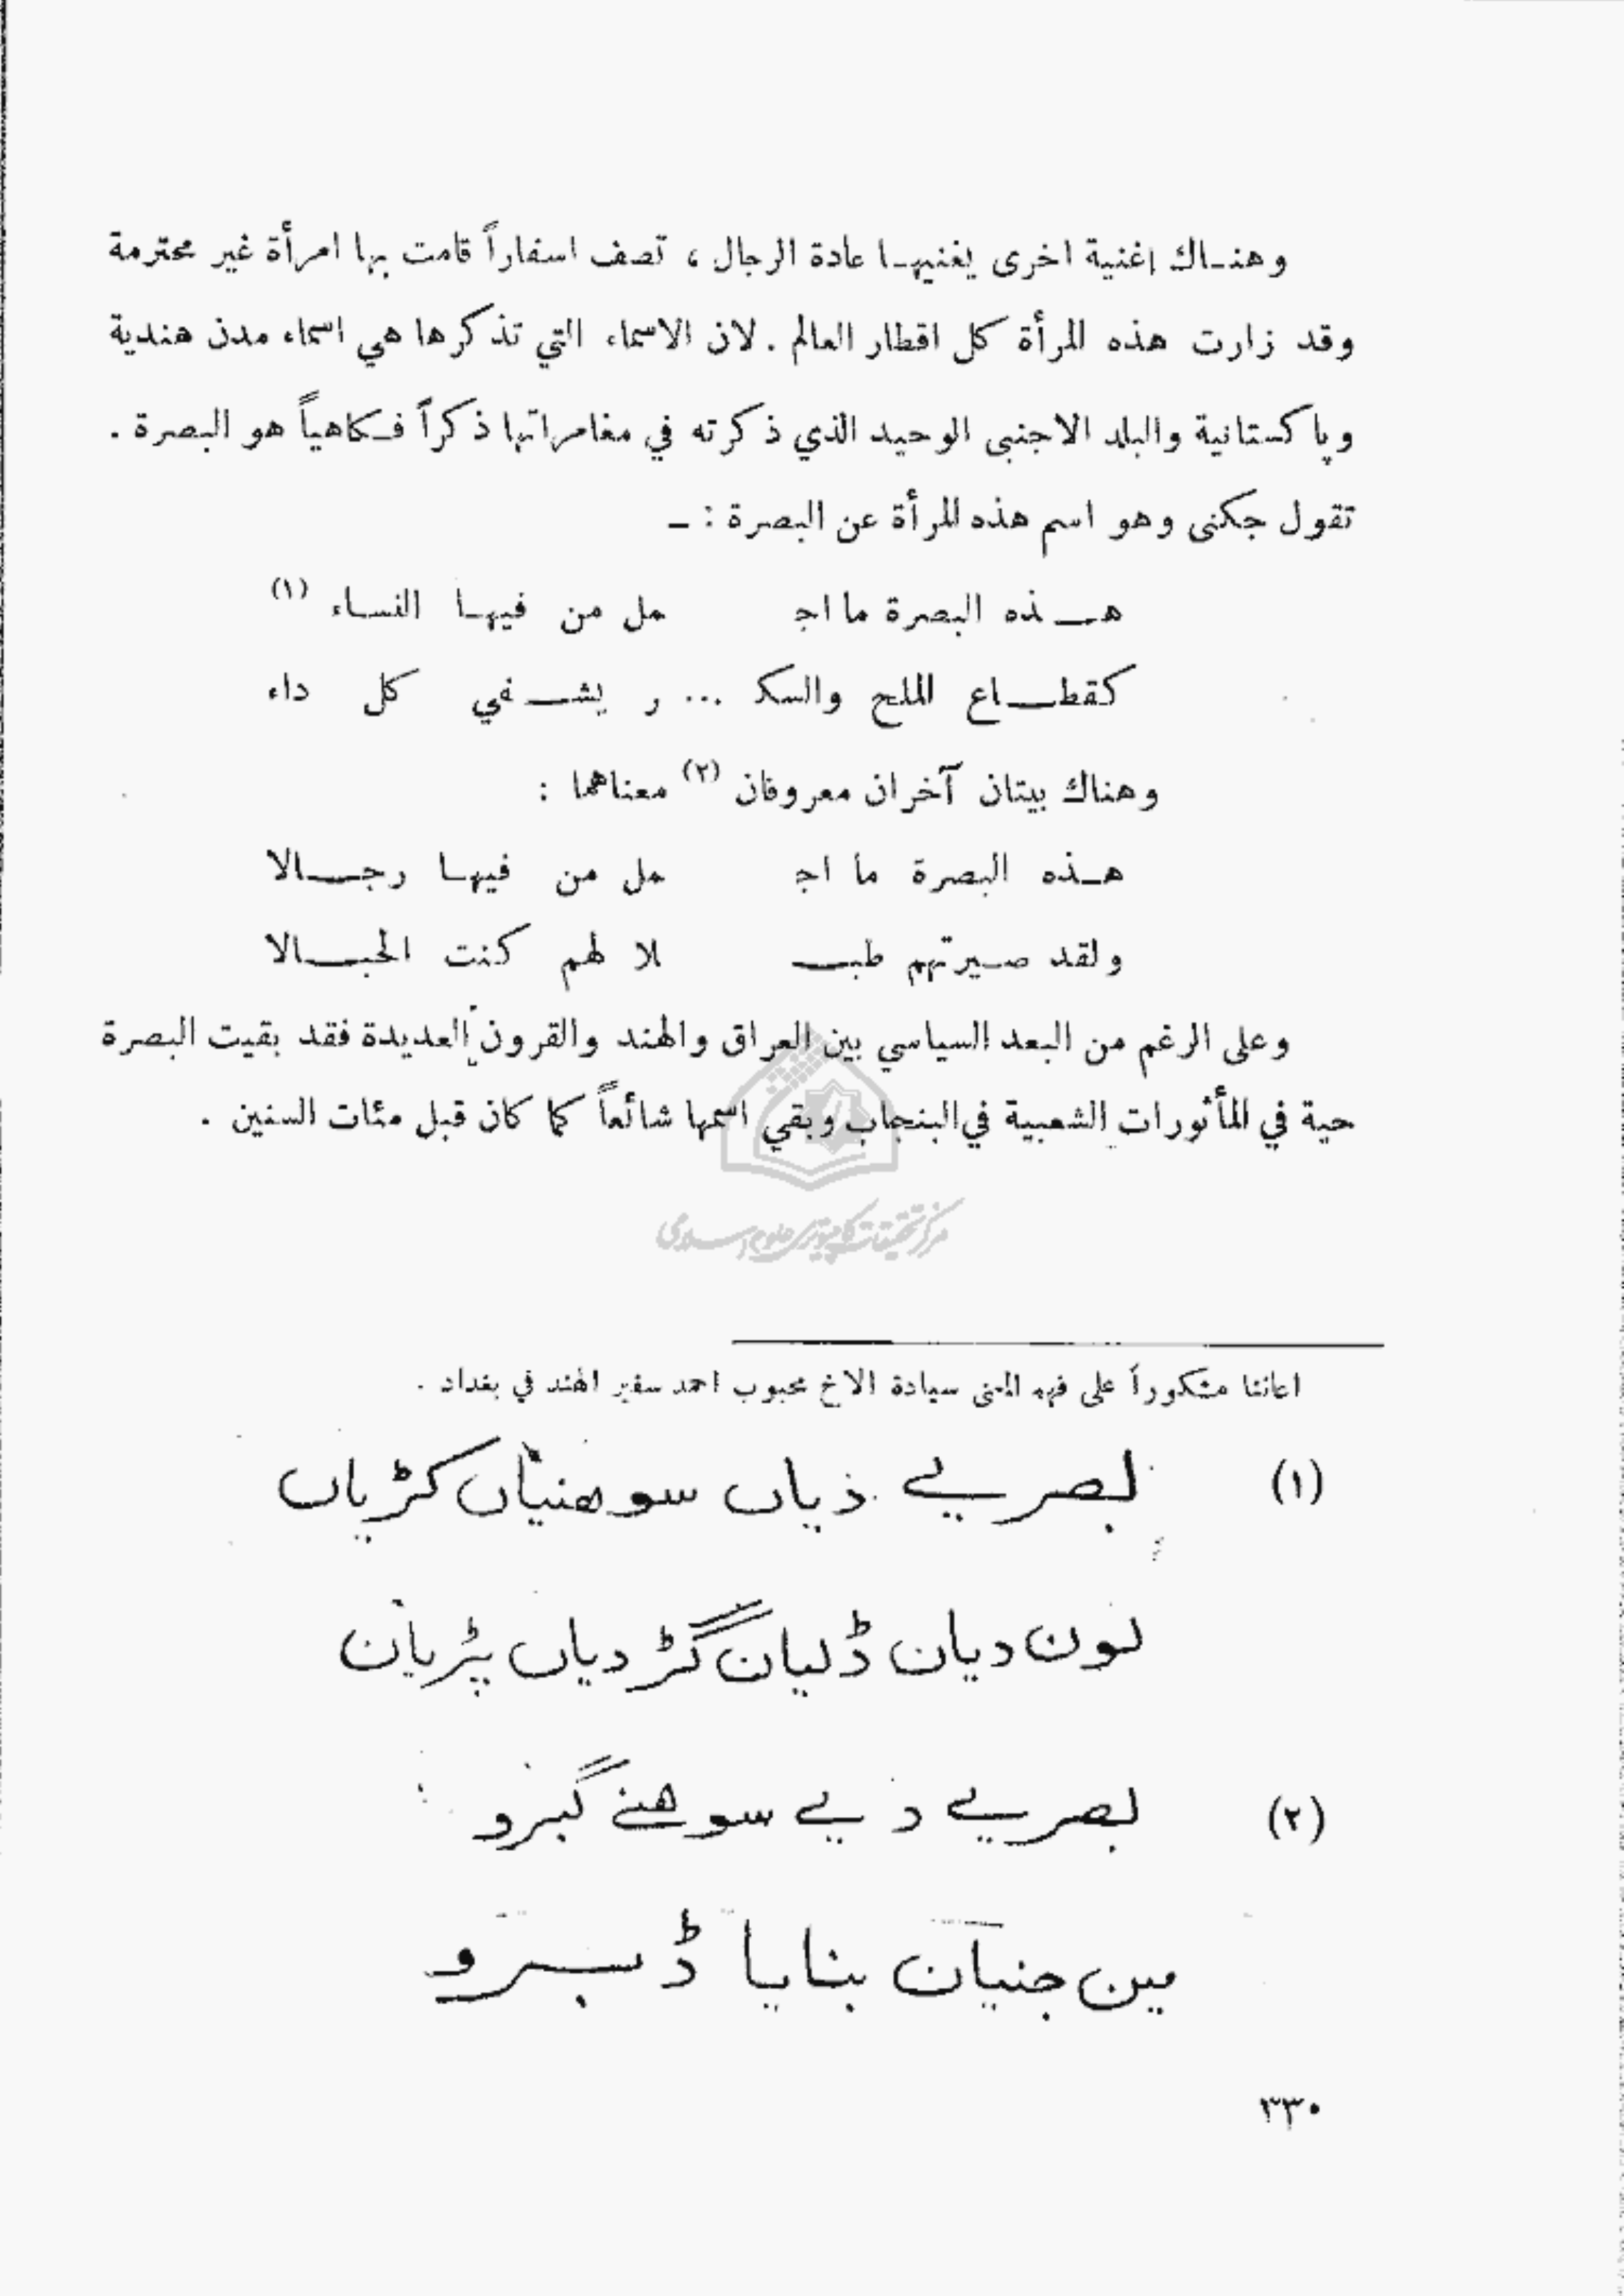 وهنـاك اغنية اخرى يغنيهـا عادة الرجال ، تصف اسفاراً قامت بها امرأة غير محترمة
وقد زارت هذه المرأة كل اقطار العالم . لان الاسماء التي تذكرها هي اسماء مدن هندية
وپاكستانية والبلد الاجنبى الوحيد الذي ذكرته في مغامراتها ذكراً فـكاهياً هو البصرة .
تقول جكنى وهو اسم هذه المرأة عن البصرة : ـ
هــذه البصرة ما اجـ مل من فيهـا النسـاء (١)
كقطــاع الملح والسكـ ... ر يشــفي كل داء
وهناك بيتان آخران معروفان (٢) معناهما :
هـذه البصرة ما اجـ مل من فيهـا رجــالا
ولقد صـيرتهم طبــ لا لهم كنت الحبــالا
وعلى الرغم من البعد السياسي بين العراق والهند والقرون العديدة فقد بقيت البصرة
حية في المأثورات الشعبية في البنجاب وبقي اسمها شائعاً كما كان قبل مئات السنين .
مركز تحقيقات كامپيوتری علوم اسلامی
اعاننا مشكوراً على فهم المعنى سيادة الاخ محبوب احمد سفير الهند في بغداد .
(١) بصريے ذياں سوهنياں كڑياں
لون ديان ڈليان گڑ دياں پڑيان
(٢) بصريے ديے سوهنے گبرو
مين جنيان بنايا ڈبرو
٣٣٠